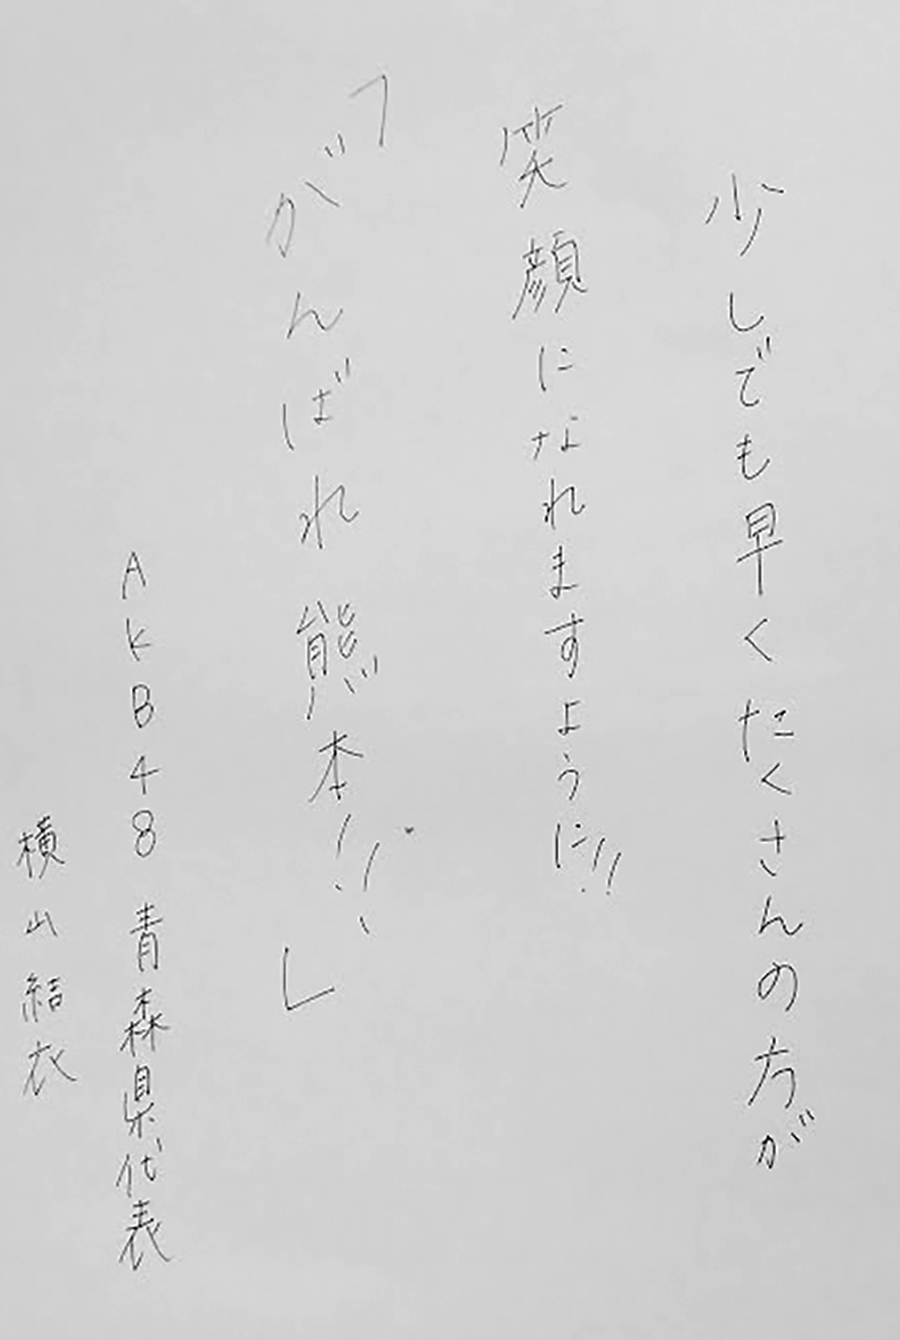 少しでも早くたくさんの方が
笑顔になれますように!!
「がんばれ熊本!!!」
AKB48 青森県代表
横山結衣